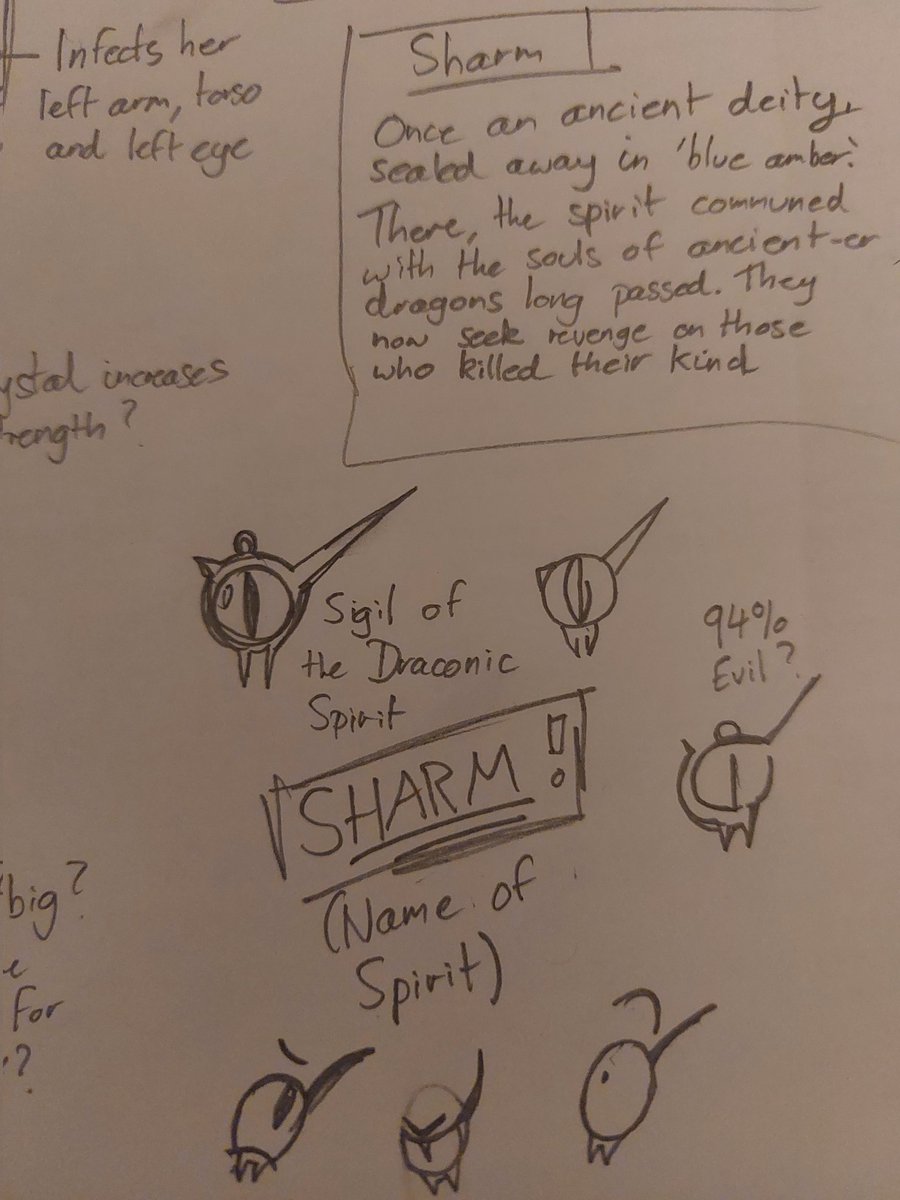 Infects her
left arm, torso
and left eye
Sharm
Once an ancient deity,
sealed away in 'blue amber'.
There, the spirit communed
with the souls of ancient-er
dragons long passed. They
now seek revenge on those
who killed their kind
ystal increases
rength?
Sigil of
the Draconic
Spirit
94%
Evil?
SHARM!
(Name of
Spirit)
big?
e
For
?